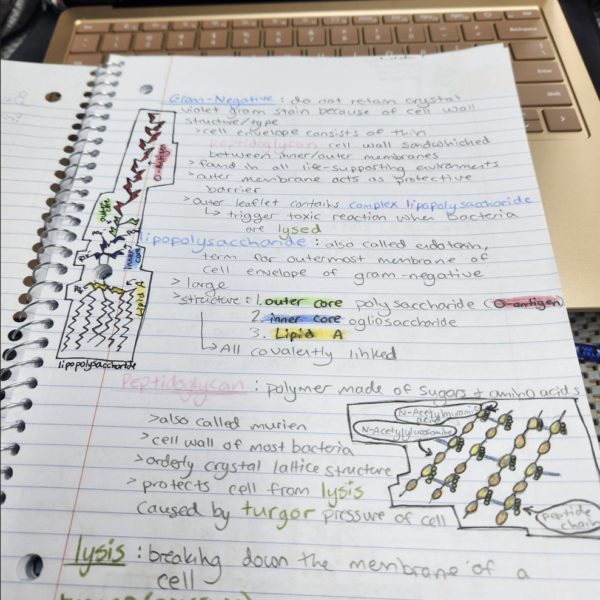 Gram-Negative : do not retain crystal
violet gram stain because of cell wall
structure/type
> cell envelope consists of thin
peptidoglycan cell wall sandwhiched
between inner/outer membranes
> found in all life-supporting environments
> outer membrane acts as protective
barrier
> outer leaflet contains complex lipopolysaccharide
↳ trigger toxic reaction when bacteria
are lysed
lipopolysaccharide : also called endotoxin,
term for outermost membrane of
cell envelope of gram-negative
> large
> structure : 1. outer core polysaccharide (O-antigen)
2. inner core ogliosaccharide
3. Lipid A
↳ All covalently linked
O-antigen
outer core
inner core
Lipid A
lipopolysaccharide
Peptidglycan : polymer made of sugars + amino acids
> also called murien
> cell wall of most bacteria
> orderly crystal lattice structure
> protects cell from lysis
caused by turgor pressure of cell
N-Acetylmuramic
acid
Peptide
chain
lysis : breaking down the membrane of a
cell